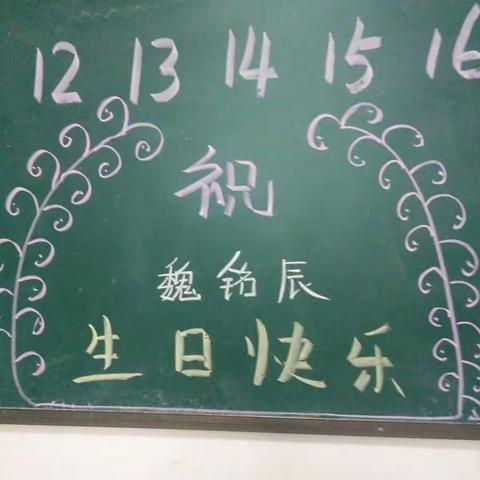 12 13 14 15 16
祝
魏铭辰
生日快乐